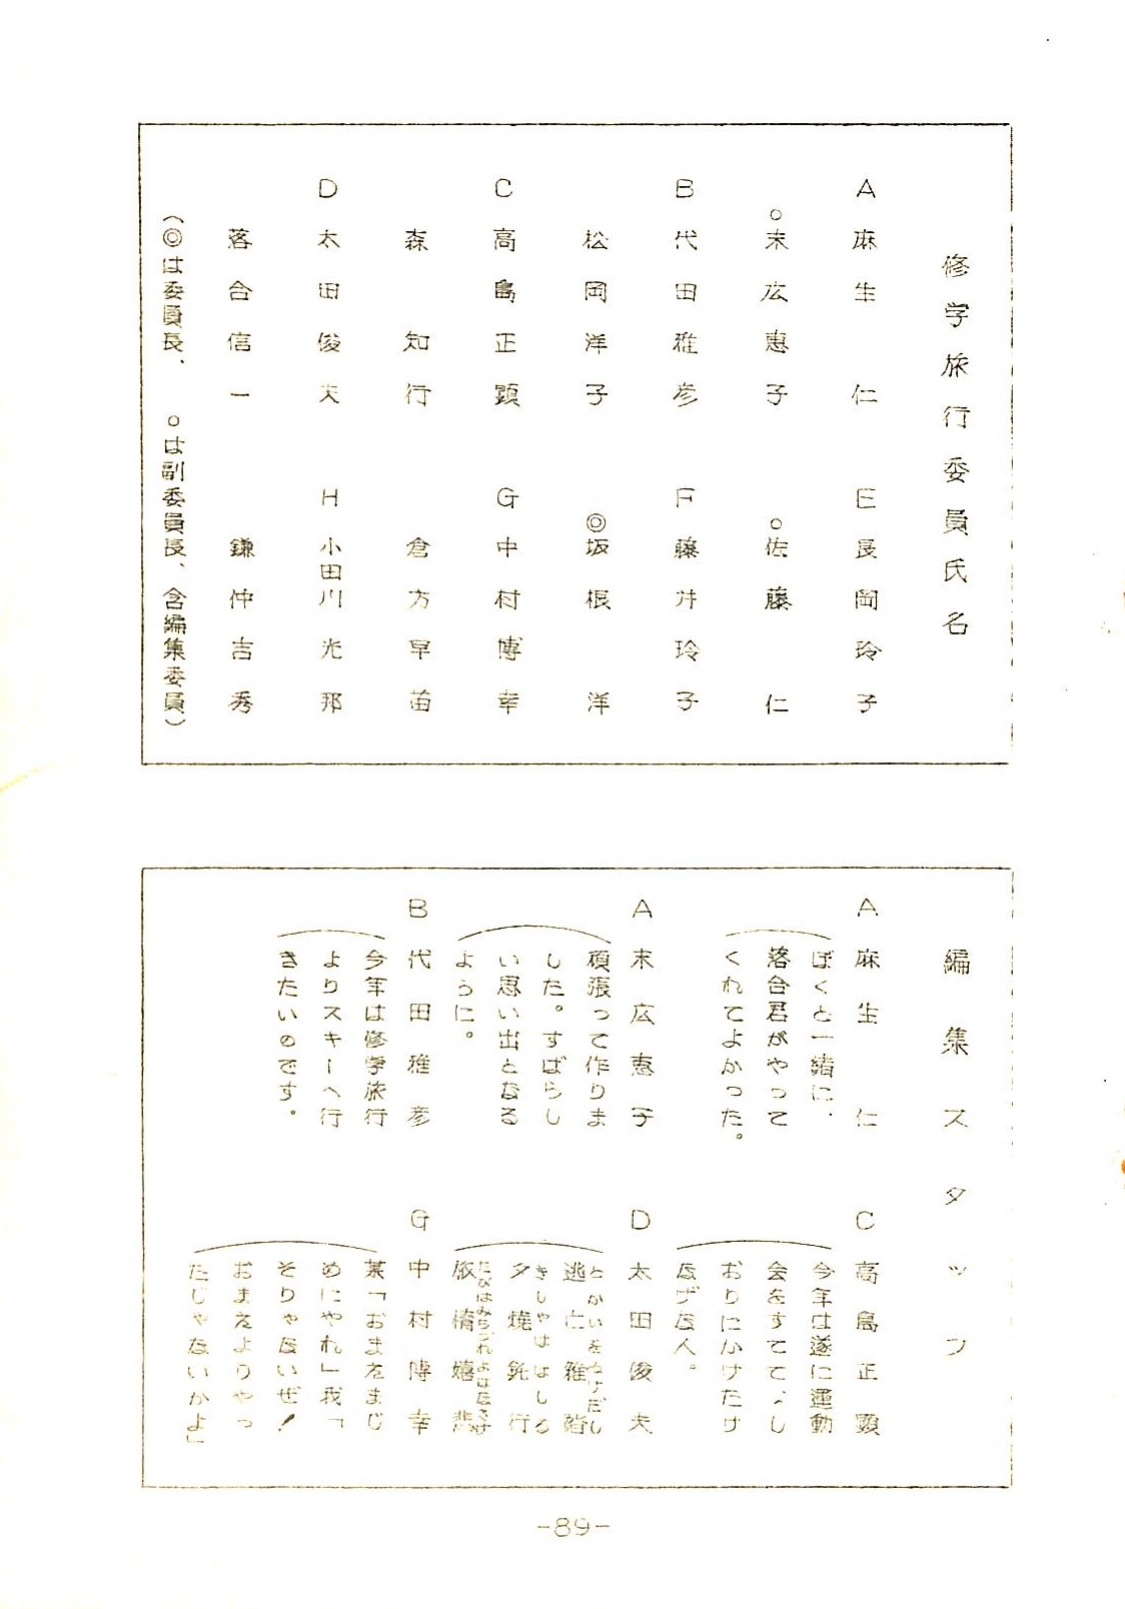 修学旅行委員氏名
A 麻生 仁
○末広恵子
B 代田雅彦
松岡洋子
C 高島正顕
森 知行
D 太田俊夫
落合信一
E 長岡玲子
○佐藤 仁
F 藤井玲子
◎坂根 洋
G 中村博幸
倉方早苗
H 小田川光邦
鎌仲吉秀
(◎は委員長、 ○は副委員長、含編集委員)
編集スタッフ
A 麻生 仁
(ぼくと一緒に、
落合君がやって
くれてよかった。)
A 末広恵子
(頑張って作りま
した。すばらし
い思い出となる
ように。)
B 代田雅彦
(今年は修学旅行
よりスキーへ行
きたいのです。)
C 高島正顕
(今年は遂に運動
会をすてて、し
おりにかけたけ
なげな人。)
D 太田俊夫
(逃亡雑踏
とかいをぬけだし
夕焼鈍行
きしゃははしる
旅情嬉悲
たびはみちづれよはなさけ)
G 中村博幸
(某「おまえまじ
めにやれ」我「
そりゃないぜ!
おまえよりやっ
たじゃないかよ」)
-89-